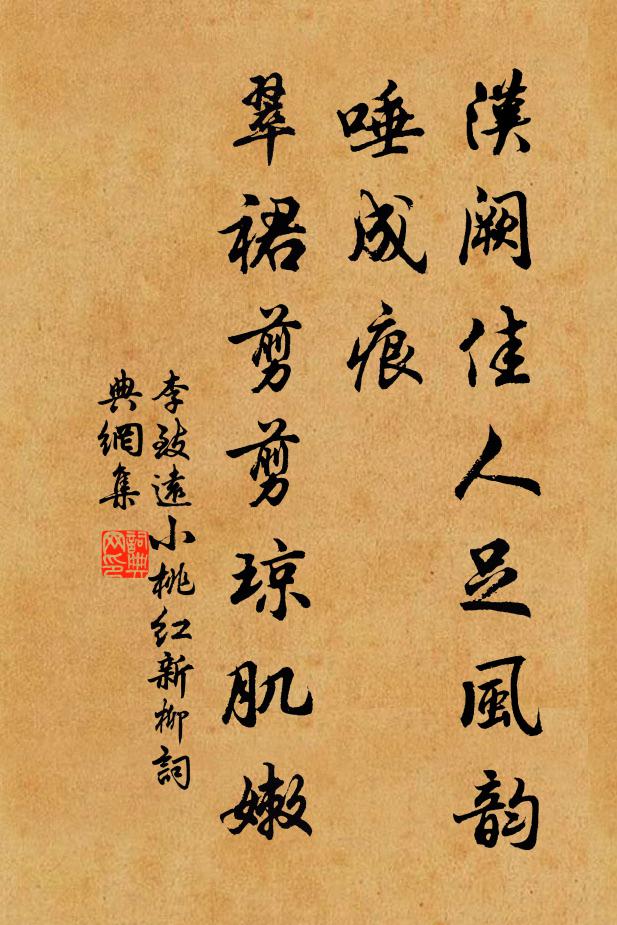 漢闕佳人足風韵
唾成痕
翠裙剪剪琼肌嫩
李致遠小桃红新柳詞
典網集
詞典
网印